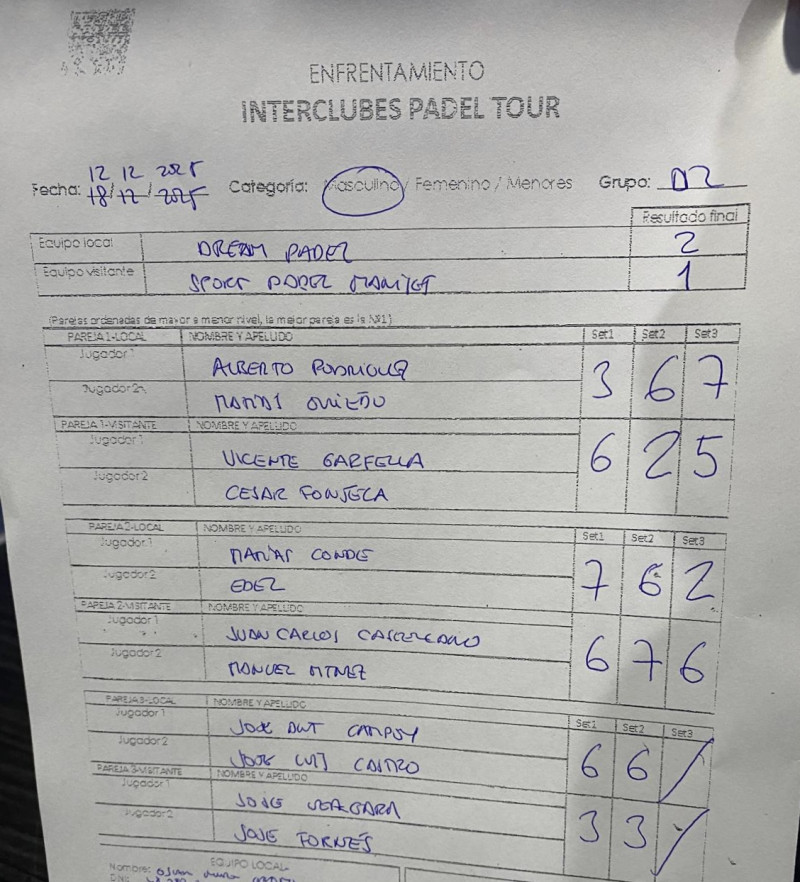 ENFRENTAMIENTO
INTERCLUBES PADEL TOUR
12 12 2025
Fecha: 18/12/2025 Categoría: Masculino / Femenino / Menores Grupo: D2
Resultado final
Equipo local DREAM PADEL 2
Equipo visitante SPORT PADEL 1
(Parejas ordenadas de mayor a menor nivel, la mejor pareja es la Nº1)
PAREJA 1-LOCAL NOMBRE Y APELLIDO Set1 Set2 Set3
Jugador 1 ALBERTO 3 6 7
Jugador 2 OVIEDO
PAREJA 1-VISITANTE NOMBRE Y APELLIDO
Jugador 1 VICENTE GARFELLA 6 2 5
Jugador 2 CESAR FONSECA
PAREJA 2-LOCAL NOMBRE Y APELLIDO Set1 Set2 Set3
Jugador 1 CONDE 7 6 2
Jugador 2 EDEL
PAREJA 2-VISITANTE NOMBRE Y APELLIDO
Jugador 1 JUAN CARLOS 6 7 6
Jugador 2 MANUEL MTNEZ
PAREJA 3-LOCAL NOMBRE Y APELLIDO Set1 Set2 Set3
Jugador 1 JOSE CAMPOY 6 6 /
Jugador 2 JOSE LUIS CASTRO
PAREJA 3-VISITANTE NOMBRE Y APELLIDO
Jugador 1 JORGE 3 3 /
Jugador 2 JOSE FORNÉS
EQUIPO LOCAL
Nombre: